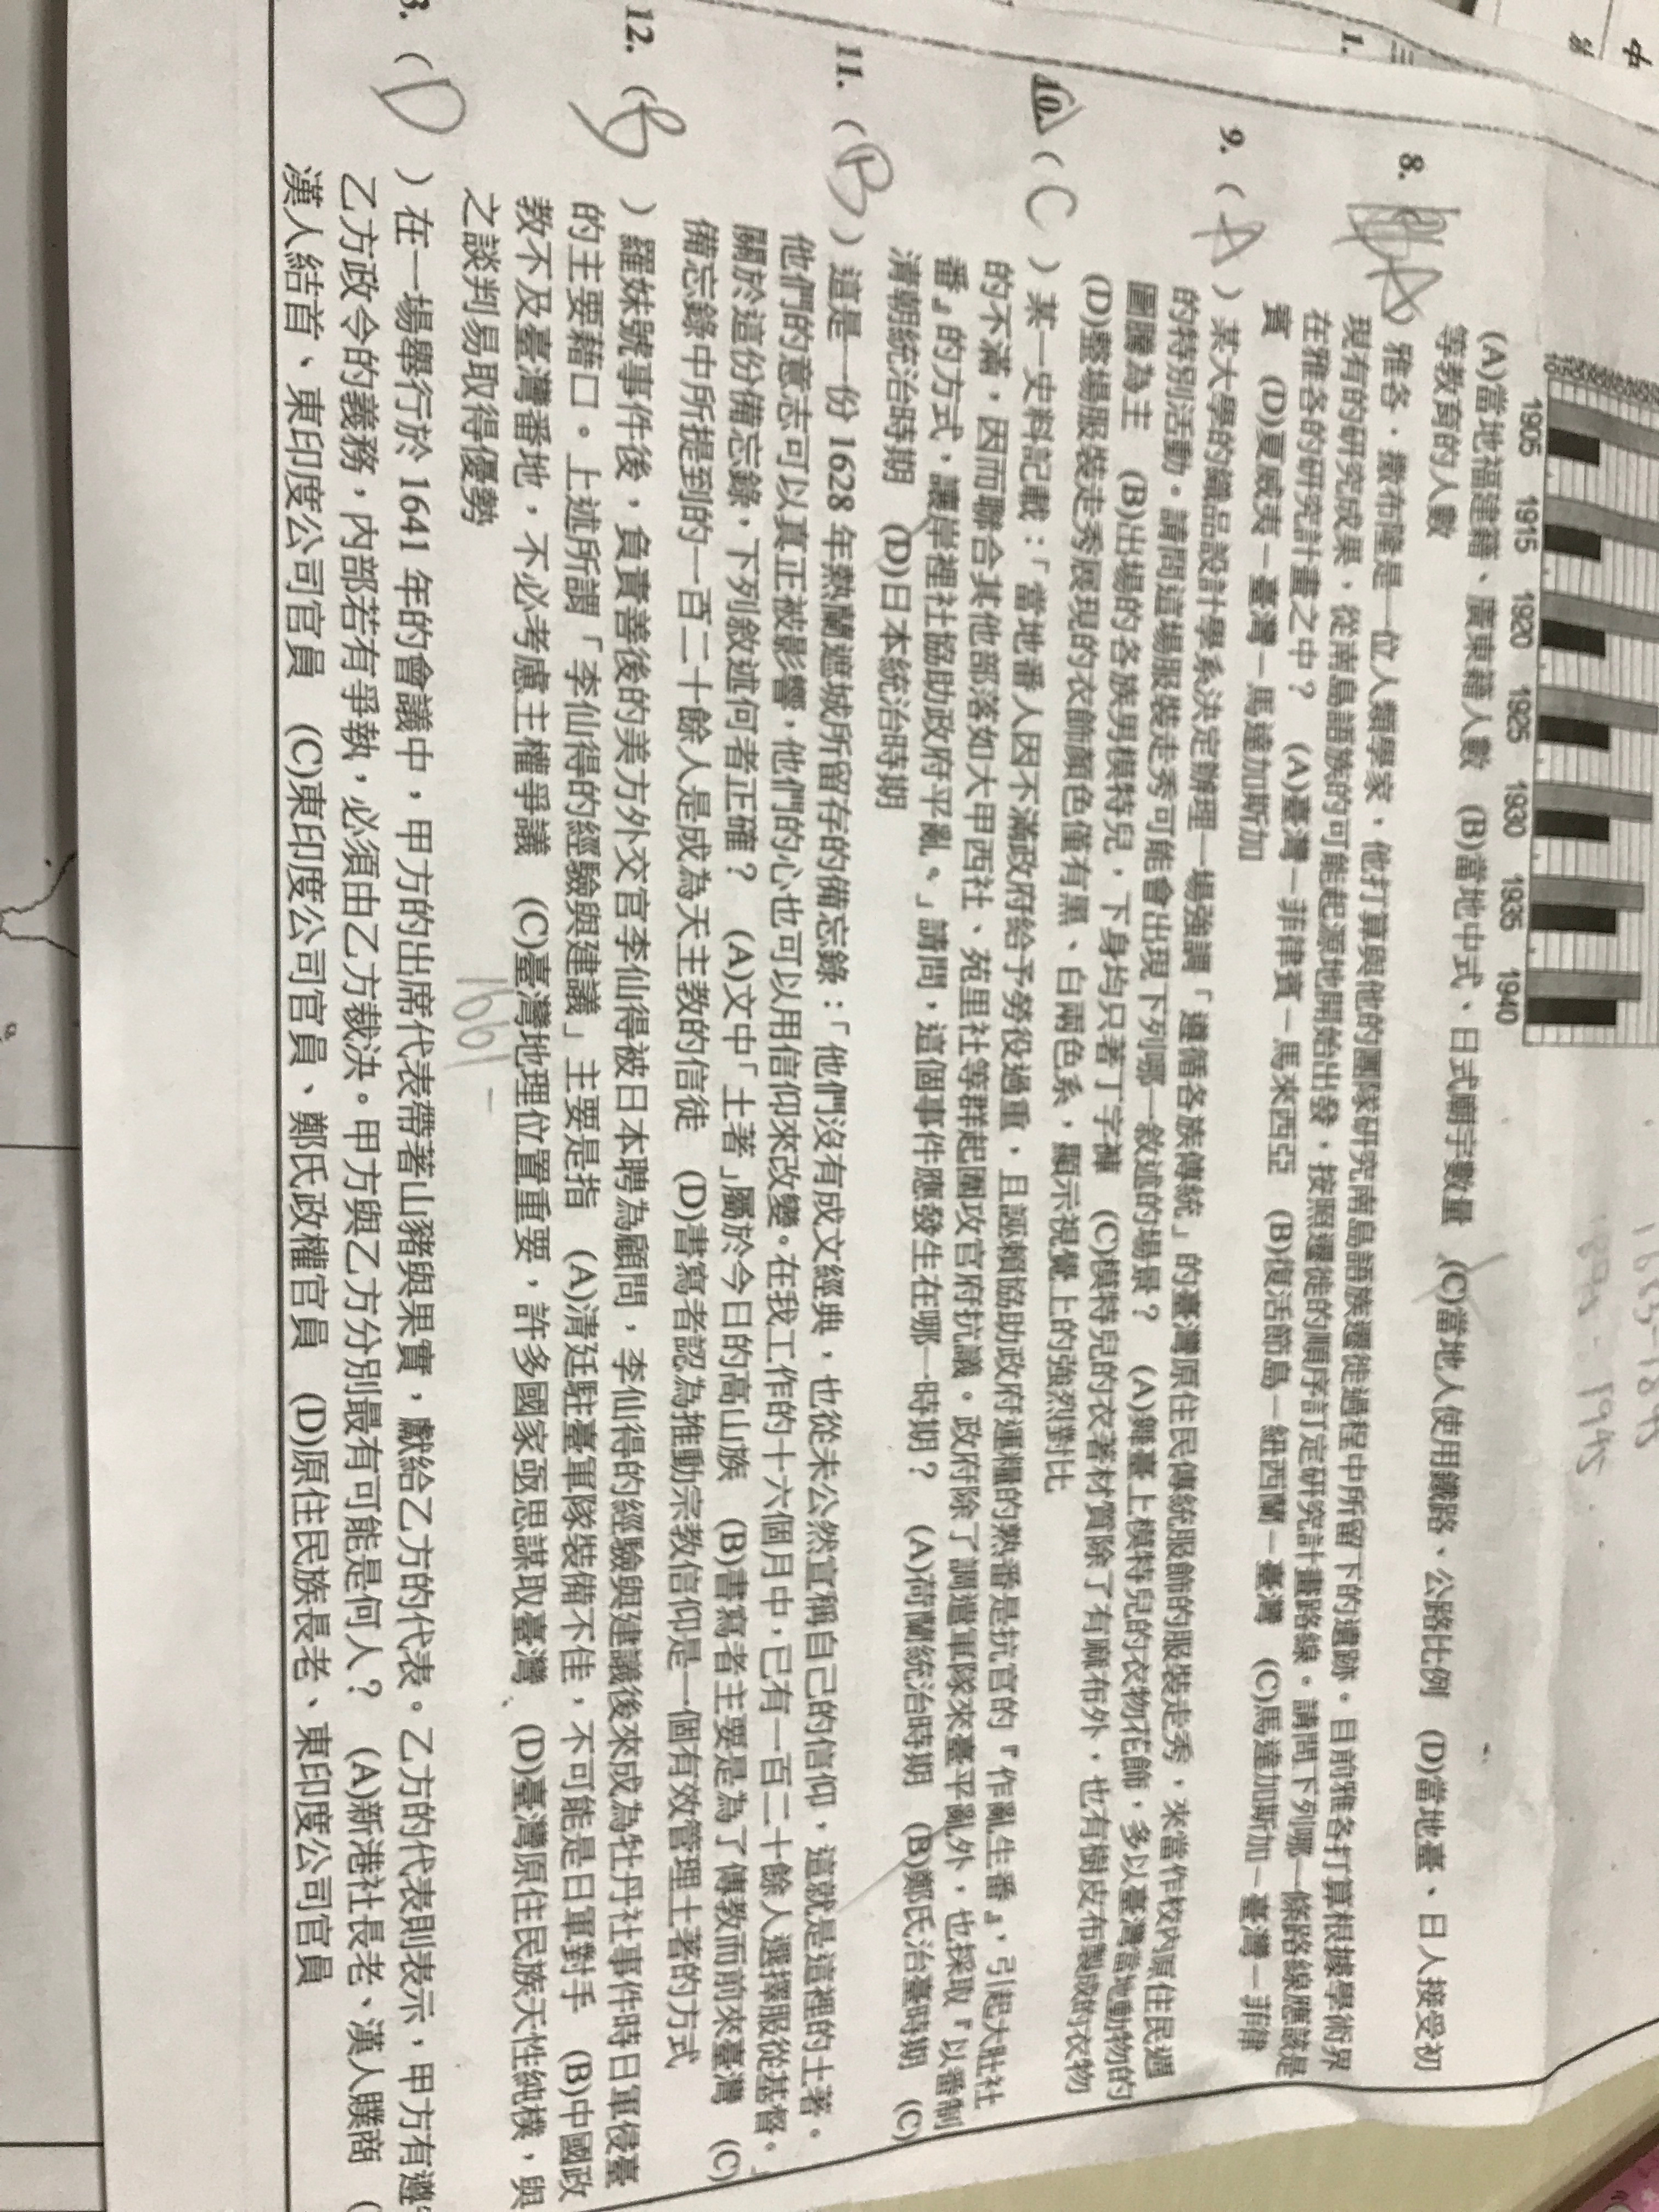 1905 1915 1920 1925 1930 1935 1940
(A)當地福建籍、廣東籍人數 (B)當地中式、日式廟宇數量 (C)當地人使用鐵路、公路比例 (D)當地臺、日人接受初
等教育的人數
8. ( A ) 雅各·撒布隆是一位人類學家，他打算與他的團隊研究南島語族遷徙過程中所留下的遺跡。目前雅各打算根據學術界
現有的研究成果，從南島語族的可能起源地開始出發，按照遷徙的順序訂定研究計畫路線。請問下列哪一條路線應該是
在雅各的研究計畫之中？ (A)臺灣－菲律賓－馬來西亞 (B)復活節島－紐西蘭－臺灣 (C)馬達加斯加－臺灣－菲律
賓 (D)夏威夷－臺灣－馬達加斯加
9. ( A ) 某大學的織品設計學系決定辦理一場強調「遵循各族傳統」的臺灣原住民傳統服飾的服裝走秀，來當作校內原住民週
的特別活動。請問這場服裝走秀可能會出現下列哪一敘述的場景？ (A)舞臺上模特兒的衣物花飾，多以臺灣當地動物的
圖騰為主 (B)出場的各族男模特兒，下身均只著丁字褲 (C)模特兒的衣著材質除了有麻布外，也有樹皮布製成的衣物
(D)整場服裝走秀展現的衣飾顏色僅有黑、白兩色系，顯示視覺上的強烈對比
10. ( C ) 某一史料記載：「當地番人因不滿政府給予勞役過重，且誣賴協助政府運糧的熟番是抗官的『作亂生番』，引起大肚社
的不滿，因而聯合其他部落如大甲西社、苑里社等群起圍攻官府抗議。政府除了調遣軍隊來臺平亂外，也採取『以番制
番』的方式，讓岸裡社協助政府平亂。」請問，這個事件應發生在哪一時期？ (A)荷蘭統治時期 (B)鄭氏治臺時期 (C)
清朝統治時期 (D)日本統治時期
11. ( B ) 這是一份 1628 年熱蘭遮城所留存的備忘錄：「他們沒有成文經典，也從未公然宣稱自己的信仰，這就是這裡的土著。
他們的意志可以真正被影響，他們的心也可以用信仰來改變。在我工作的十六個月中，已有一百二十餘人選擇服從基督。」
關於這份備忘錄，下列敘述何者正確？ (A)文中「土著」屬於今日的高山族 (B)書寫者主要是為了傳教而前來臺灣 (C)
備忘錄中所提到的一百二十餘人是成為天主教的信徒 (D)書寫者認為推動宗教信仰是一個有效管理土著的方式
12. ( B ) 羅妹號事件後，負責善後的美方外交官李仙得被日本聘為顧問，李仙得的經驗與建議後來成為牡丹社事件時日軍侵臺
的主要藉口。上述所謂「李仙得的經驗與建議」主要是指 (A)清廷駐臺軍隊裝備不佳，不可能是日軍對手 (B)中國政
教不及臺灣番地，不必考慮主權爭議 (C)臺灣地理位置重要，許多國家亟思謀取臺灣 (D)臺灣原住民族天性純樸，與
之談判易取得優勢
1661-
3. ( D ) 在一場舉行於 1641 年的會議中，甲方的出席代表帶著山豬與果實，獻給乙方的代表。乙方的代表則表示，甲方有遵
乙方政令的義務，內部若有爭執，必須由乙方裁決。甲方與乙方分別最有可能是何人？ (A)新港社長老、漢人贌商 (
漢人結首、東印度公司官員 (C)東印度公司官員、鄭氏政權官員 (D)原住民族長老、東印度公司官員